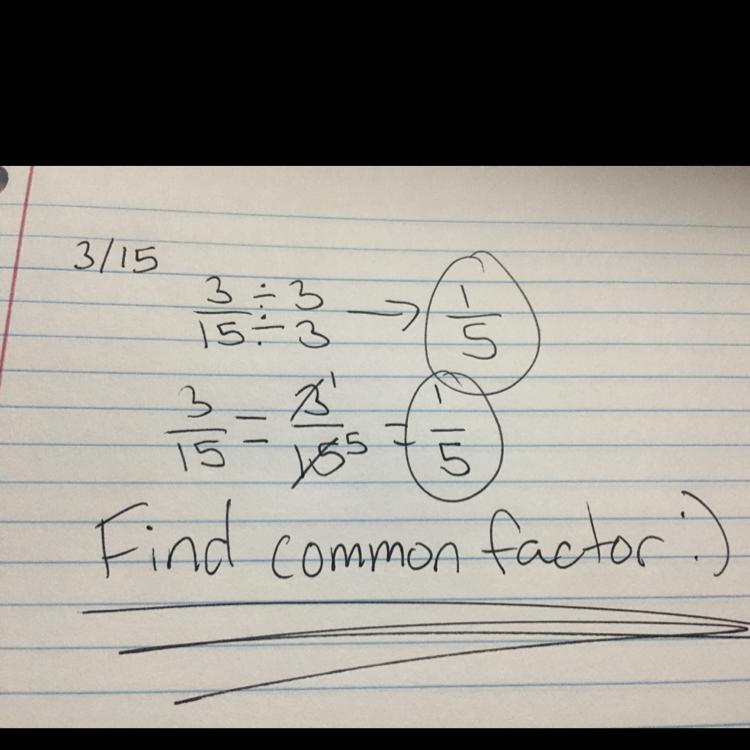 3/15
3 ÷ 3 → 1
15 ÷ 3 5
3 = 3 1 = 1
15 15 5 5
Find common factor :)